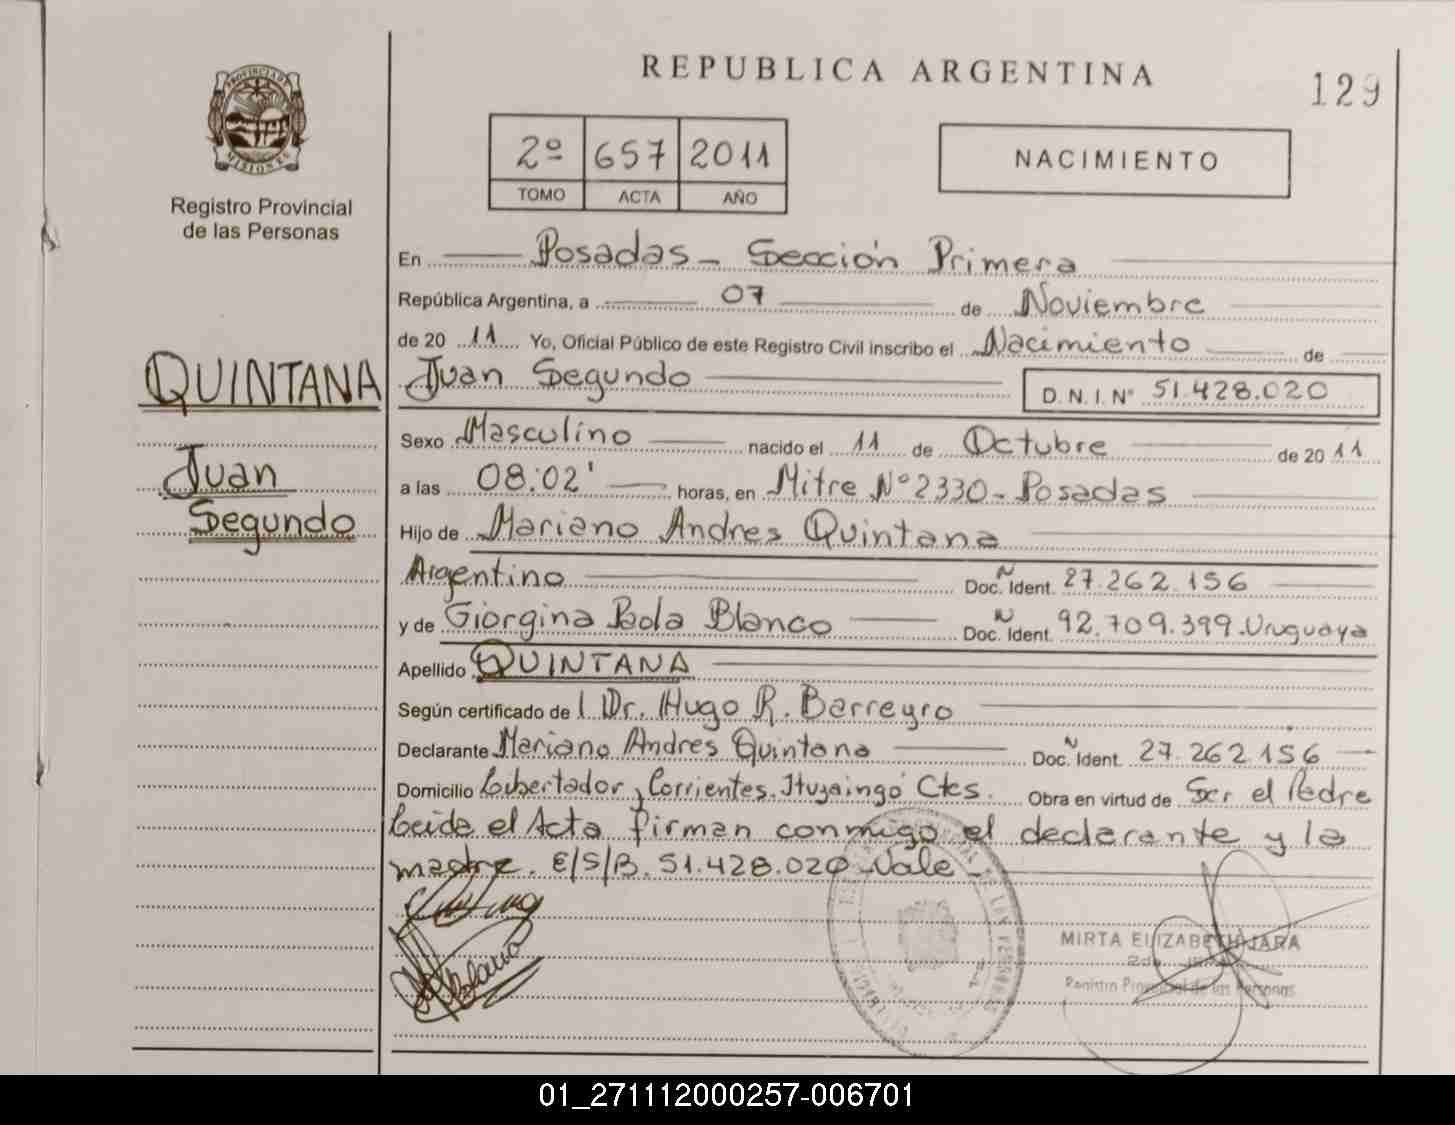 REPUBLICA ARGENTINA
129
PROVINCIA DE
MISIONES
Registro Provincial
de las Personas
2º 657 2011
TOMO ACTA AÑO
NACIMIENTO
En Posadas - Sección Primera
República Argentina, a 07 de Noviembre
de 20 11 Yo, Oficial Público de este Registro Civil inscribo el Nacimiento de
QUINTANA
Juan
Segundo
Juan Segundo D.N.I. Nº 51.428.020
Sexo Masculino nacido el 11 de Octubre de 20 11
a las 08:02' horas, en Mitre Nº 2330 - Posadas
Hijo de Mariano Andres Quintana
Argentino Doc. Ident. N 27.262.156
y de Giorgina Paola Blanco Doc. Ident. N 92.709.399. Uruguaya
Apellido QUINTANA
Según certificado de l Dr. Hugo R. Barreyro
Declarante Mariano Andres Quintana Doc. Ident. N 27.262.156
Domicilio Libertador y Corrientes. Ituzaingó Ctes. Obra en virtud de Ser el Padre
Leida el Acta firman conmigo el declarante y la
madre. E/S/B. 51.428.020 - Vale -
MIRTA ELIZABETH JARA
Registro Provincial de las Personas
01_271112000257-006701